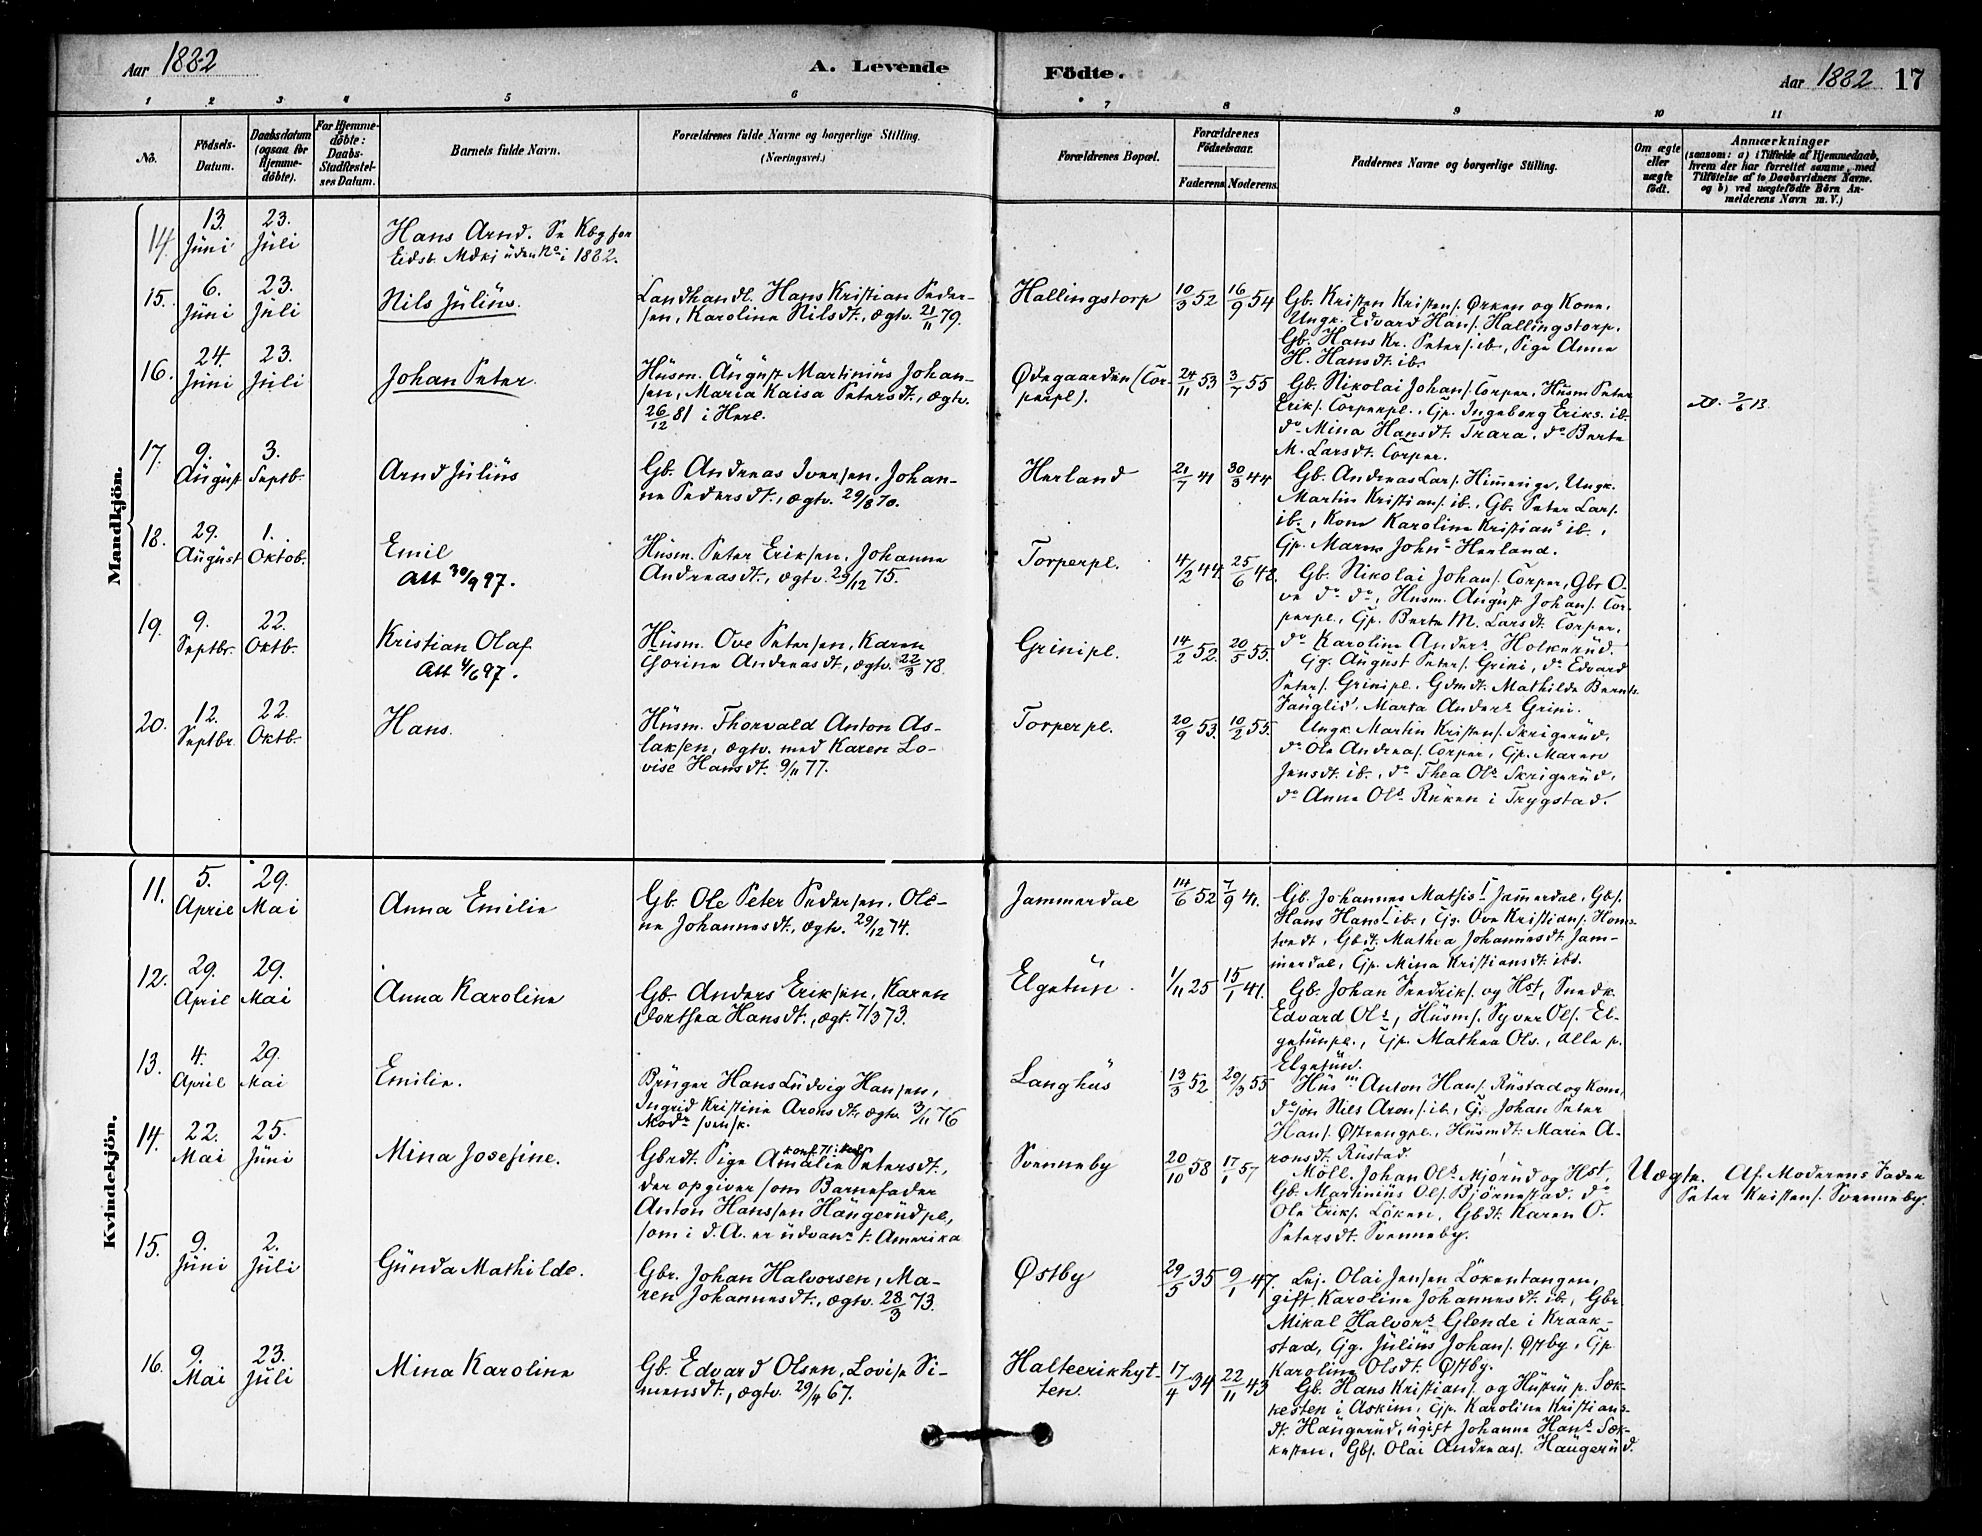 Aar 1882
A. Levende
Födte.
Aar 1882 17
1 2 3 4 5 6 7 8 9 10 11
No.
Födsels-
Datum.
Daabsdatum
(ogsaa for
Hjemme-
döbte).
For Hjemme-
döbte:
Daabs-
Stadfæstel-
ses Datum.
Barnets fulde Navn.
Forældrenes fulde Navne og borgerlige Stilling.
(Næringsvei.)
Forældrenes Bopæl.
Forældrenes
Födselsaar.
Faderens Moderens
Faddernes Navne og borgerlige Stilling.
Om ægte
eller
uægte
födt.
Anmærkninger
(saasom: a) i Tilfælde af Hjemmedaab,
hvem der har forrettet samme, med
Tilföielse af to Daabsvidners Navne.
og b) ved uægtefödte Börn An-
melderens Navn m. V.)
Mandkjön.
14.
13.
Juni
23.
Juli
Hans Arnd. Se Kbg for
Eidsb. Mdkj uden No i 1882.
15.
6.
Juni
23.
Juli
Nils Julius.
Landhandl. Hans Kristian Peder-
sen, Karoline Nilsdt., ægtv. 21/11 79.
Hallingstorp
10/3 52
16/9 54
Gb. Kristen Kristens. Ørken og Kone,
Ungk. Edvard Hans. Hallingstorp.
Gb. Hans Kr. Peters. ib., Pige Anne
H. Hansdt. ib.
16.
24.
Juni
23.
Juli
Johan Peter.
Husm. August Martinius Johan-
sen, Maria Kaisa Petersdt., ægtv.
26/12 81 i Herl.
Ødegaarden (Tor-
perpl).
24/11 53
3/7 55
Gb. Nikolai Johans. Torper, Husm Peter
Eriks. Torperpl., Gp. Ingeborg Eriks. ib.
do Mina Hansdt. Trara, do Berte
M. Larsdt. Torper.
2/6 13.
17.
9.
August
3.
Septb.
Arnd Julius
Gb. Andreas Iversen, Johan-
ne Pedersdt., ægtv. 29/8 70.
Herland
21/7 41
30/3 44
Gb. Andreas Lars. Himerige, Ungk.
Martin Kristians. ib., Gb. Peter Lars.
ib., Kone Karoline Kristians ib.,
Gp. Maren Johns Herland.
18.
29.
August
1.
Oktob.
Emil
Att 30/9 97.
Husm. Peter Eriksen, Johanne
Andreasdt., ægtv. 29/12 75.
Torperpl.
4/2 44.
25/6 48.
Gb. Nikolai Johans. Torper, Gbr O-
ve do do, Husm. August Johans. Tor-
perpl., Gp. Berte M. Larsdt Torper,
do Karoline Anders Holkerud.
19.
9.
Septbr.
22.
Oktb.
Kristian Olaf
Att 4/6 97.
Husm. Ove Petersen, Karen
Thorine Andreasdt., ægtv. 22/3 78.
Grinipl.
14/2 52.
20/5 55.
Gg. August Peters. Grini, do Edvard
Peters. Grinipl., Gdmdt. Mathilde Bernts.
Fuuglid. Marta Anders Grini.
20.
12.
Septbr.
22.
Oktb.
Hans.
Husm. Thorvald Anton As-
laksen, ægtv. med Karen Lo-
vise Hansdt. 9/11 77.
Torperpl.
20/9 53.
10/2 55.
Ungk. Martin Kristens. Skrigerud,
do Ole Andreas. Torper, Gp. Maren
Jensdt. ib., do Thea Ols Skrigerud,
do Anne Ols Ruken i Trygstad.
Kvindekjön.
11.
5.
April
29.
Mai
Anna Emilie
Gb. Ole Peter Pedersen, Ole-
ne Johannesdt., ægtv. 29/12 74.
Jammerdal
14/6 52
7/9 41.
Gb. Johannes Mathis Jamerdal, Gbs.
Hans Hans ib., Gg. Ove Kristians. Hom-
tvedt, Gbdt. Mathea Johannesdt. Jam-
merdal, Gp. Mina Kristiansdt. ibd.
12.
29.
April
29.
Mai
Anna Karoline
Gb. Anders Eriksen, Karen
Dorthea Hansdt., ægt. 7/3 73.
Elgetun.
1/11 25
15/1 41.
Gb. Johan Fredriks. og Hst, Snedk.
Edvard Ols, Husms. Syver Ols. El-
getunpl., Gp. Mathea Ols., alle p.
Elgetun.
13.
4.
April
29.
Mai
Emilie.
Bruger Hans Ludvig Hansen,
Ingrid Kristine Aronsdt, ægtv. 3/11 76
Modr svensk.
Langhus
13/3 52
29/3 55
Husm Anton Hans. Rustad og Kone,
Nils Arons. ib., G. Johan Peter
Hans. Østrengpl., Husmdt. Marie A-
ronsdt. Rustad.
14.
22.
Mai
25.
Juni
Mina Josefine.
Gbrdt. Pige Amalie Petersdt.,
der opgiver som Barnefader
Anton Hanssen Haugerudpl,
som i d. A. er udvanr t. Amerika
Svenneby
20/10 58
17/1 57
Möll. Johan Ols Mjörud og Hst,
Gb. Martinius Ols. Björnestad, do
Ole Eriks. Löken, Gbdt. Karen O.
Petersdt. Svenneby.
Uægte.
Af Moderens Fader
Peter Kristens. Svenneby.
15.
9.
Juni
2.
Juli
Gunda Mathilde.
Gbr. Johan Halvorsen, Ma-
ren Johannesdt., ægtv. 28/3 73.
Østby
29/5 35
9/1 47.
Lej. Olai Jensen Lökentangen,
gift Karoline Johannesdt ib., Gbr
Mikal Halvors Glende i Kraak-
stad, Gg. Julius Johans. Østby, Gp
Karoline Olsdt. Østby.
16.
9.
Mai
23.
Juli
Mina Karoline
Gb. Edvard Olsen, Lovise Si-
mensdt., ægtv. 29/4 67.
Halteerikhyt-
ten.
17/4 34
22/11 43
Gb. Hans Kristians. og Hustru p. Sæk-
kesten i Askim, Gp. Karoline Kristians-
dt. Haugerud, ugift Johanne Hans Sæk-
kesten, Gbs. Olai Andreass. Haugerud.